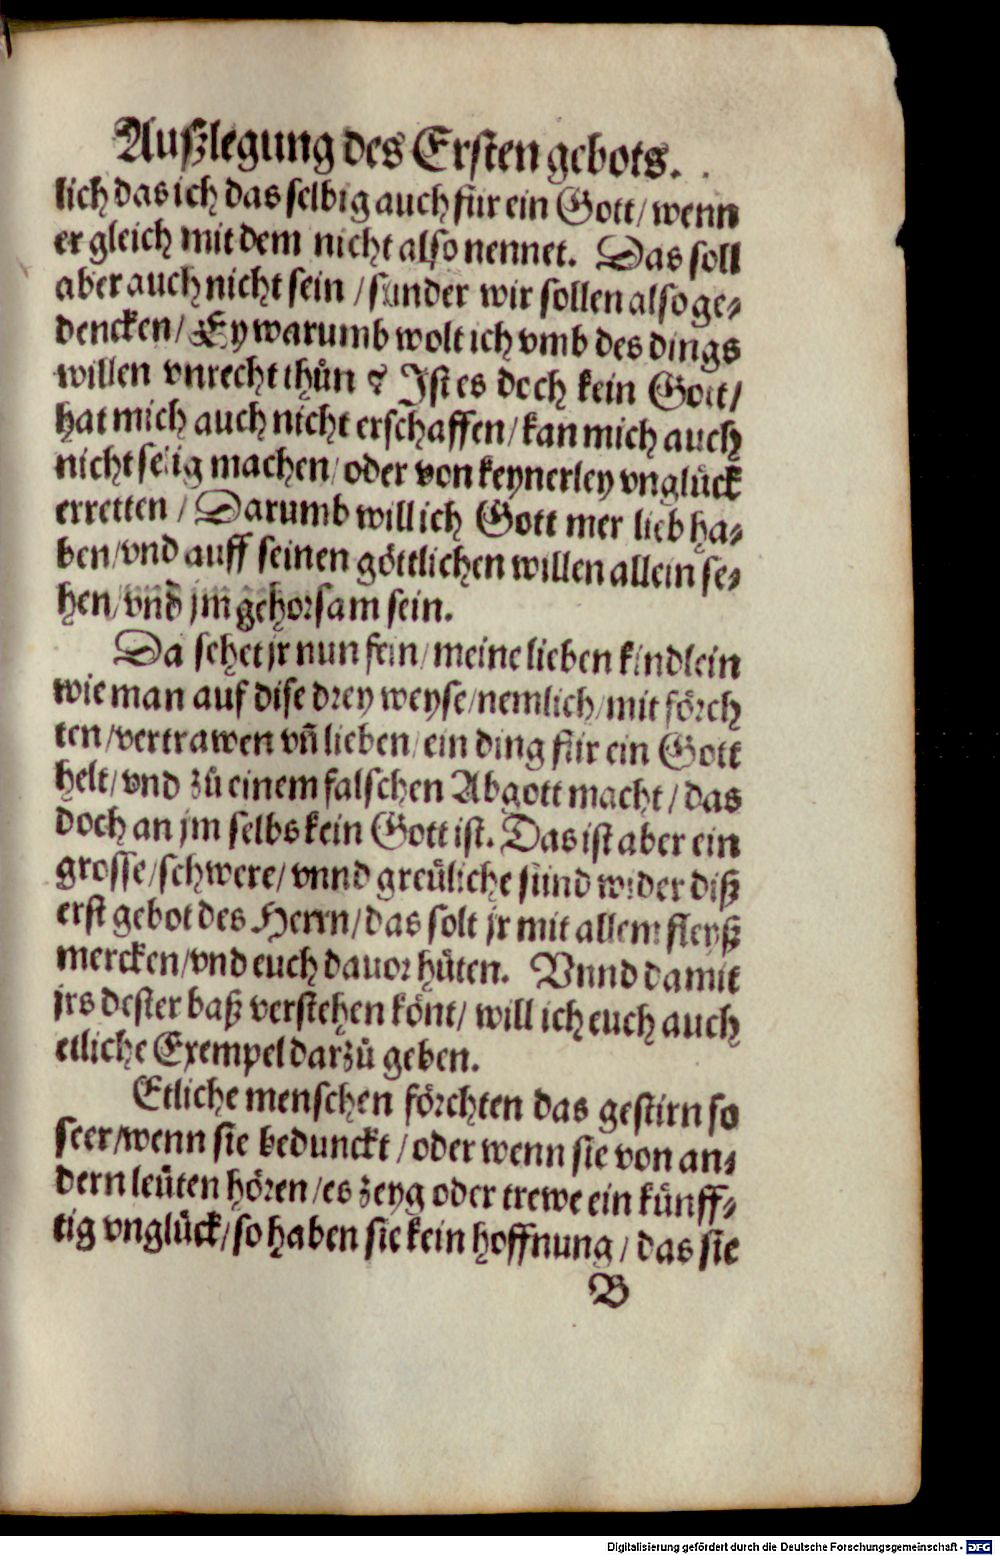 Außlegung des Ersten gebots.
lich das ich das selbig auch für ein Gott/ wenn
er gleich mit dem nicht also nennet. Das soll
aber auch nicht sein / sunder wir sollen also ge⸗
dencken/ Ey warumb wolt ich vmb des dings
willen vnrecht thůn ? Ist es doch kein Gott/
hat mich auch nicht erschaffen/ kan mich auch
nicht selig machen/ oder von keynerley vnglück
erretten / Darumb will ich Gott mer lieb ha⸗
ben/ vnd auff seinen göttlichen willen allein se⸗
hen/ vnd jm gehorsam sein.
Da sehet jr nun fein/ meine lieben kindlein
wie man auf dise drey weyse/ nemlich/ mit förch
ten/ vertrawen vñ lieben/ ein ding für ein Gott
helt/ vnd zů einem falschen Abgott macht/ das
doch an jm selbs kein Gott ist. Das ist aber ein
grosse/ schwere/ vnnd greüliche sünd wider diß
erst gebot des Herrn/ das solt jr mit allem fleyß
mercken/ vnd euch dauor hüten. Vnnd damit
jrs dester baß verstehen könt/ will ich euch auch
etliche Exempel darzů geben.
Etliche menschen förchten das gestirn so
seer/ wenn sie bedunckt / oder wenn sie von an⸗
dern leüten hören/ es zeyg oder trewe ein künff⸗
tig vnglück/ so haben sie kein hoffnung / das sie
B
Digitalisierung gefördert durch die Deutsche Forschungsgemeinschaft - DFG